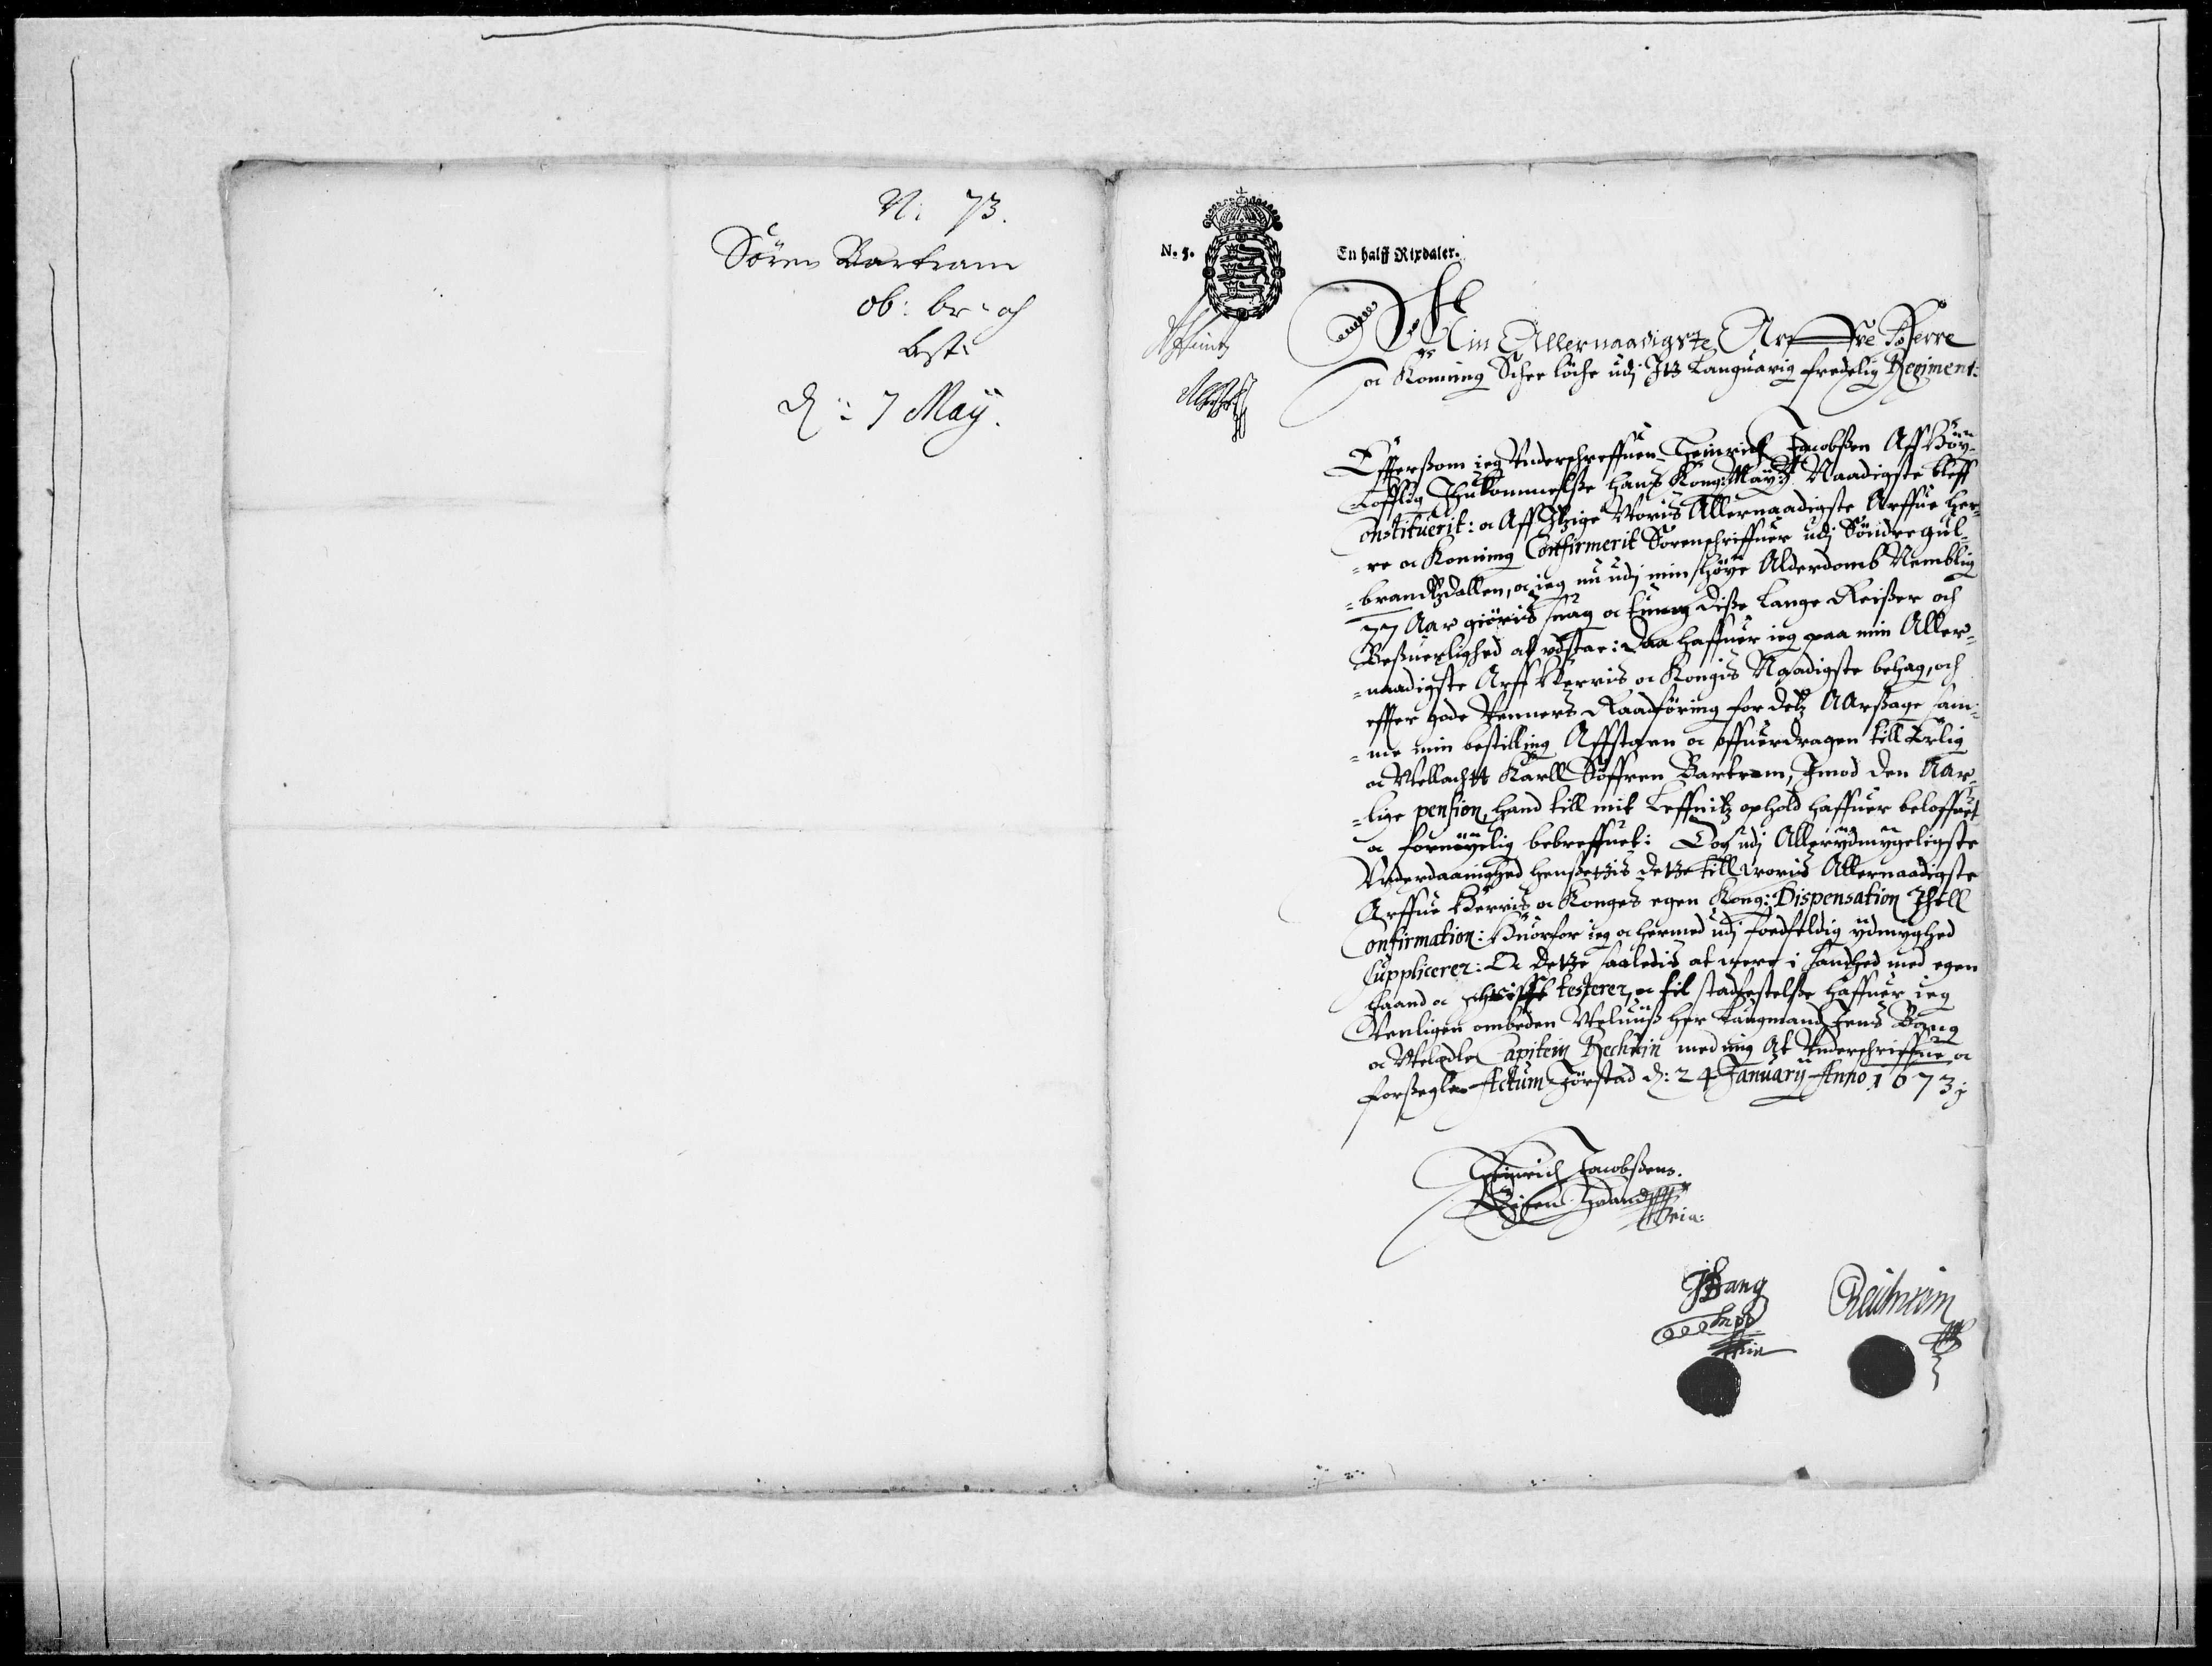 N: 73.
Sören Bartram
ob: br: och
best:
d: 7 Maÿ.
No. 5.
En halff Rixdaler.
Min Allernaadigste Arffve Herre
oc Konning Schee löche udj Itz Languarig fredelig Regiment:
Effterßom ieg Underschreffuen Heinrich Jacobßen Aff Höy-
Lofflig Ihukommelsße hans Kong: Maÿ: Naadigste bleff
Constituerit: oc Aff Itzige Voris Allernaadigste Arffue Her-
=re oc Konning Confirmerit Sorenschriffuer udj Söndre gul-
=brandtzdallen, oc ieg nu udj min höye Alderdomb Nemblig
77 Aar giöris suag oc tung diße Lange Reißer och
Beßuerlighed at udstae: Daa haffuer ieg paa min Aller-
=naadigste Arff Herris oc Kongis Naadigste behag, och
effter gode Venners Raadföring for detz Aarßage sam-
=me min bestilling Affstaaen oc offuerdragen till Erlig
oc Vellachtt Karll Söffren Bartram, Imod den Aar-
=lige pension, hand till mit Leffnitz ophold haffuer beloffuet
oc fornöyelig bebreffuet: Dog udj Allerydmygeligste
Underdaanighed henßettis dette till voris Allernaadigste
Arffue Herris oc Konges egen Kong: Dispensation Ihell
Confirmation: Huorfor ieg oc hermed udj fodfeldig ydmyghed
Supplicerer: Oc dette saaledis at were i Sandhed med egen
haand oc schrifft testerer, oc til stadfestelße haffuer ieg
Venligen ombeden Velviiß her Laugmand Jens Bang
oc Veledle Capitein Rechtin med mig At Underschriffue oc
forßegle Actum Jörstad d: 24 January Anno 1673
Heinrich Jacobßens.
Eigen Haand
mpria:
JBang
mpp